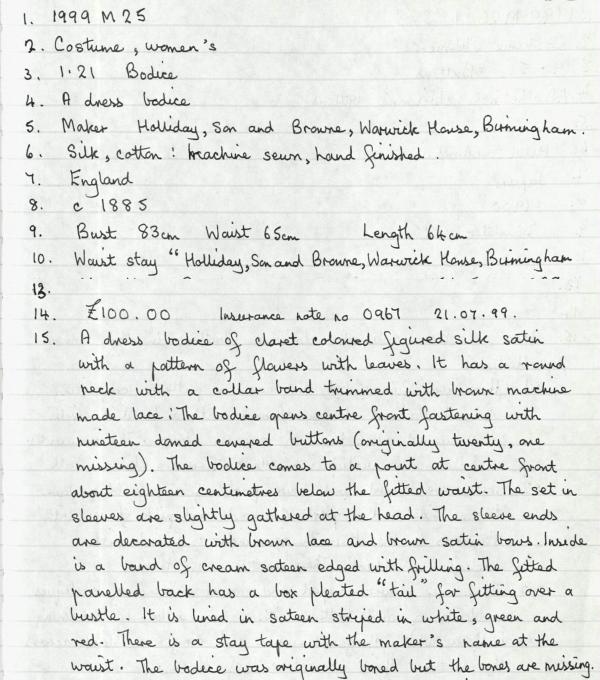 1. 1999 M 25
2. Costume, women's
3. 1.21 Bodice
4. A dress bodice
5. Maker Holliday, Son and Browne, Warwick House, Birmingham.
6. Silk, cotton : machine sewn, hand finished.
7. England
8. c 1885
9. Bust 83cm Waist 65cm Length 64cm
10. Waist stay "Holliday, Son and Browne, Warwick House, Birmingham
13.
14. £100.00 Insurance note no 0967 21.07.99.
15. A dress bodice of claret coloured figured silk satin
with a pattern of flowers with leaves. It has a round
neck with a collar band trimmed with brown machine
made lace; The bodice opens centre front fastening with
nineteen domed covered buttons (originally twenty, one
missing). The bodice comes to a point at centre front
about eighteen centimetres below the fitted waist. The set in
sleeves are slightly gathered at the head. The sleeve ends
are decorated with brown lace and brown satin bows. Inside
is a band of cream sateen edged with frilling. The fitted
panelled back has a box pleated "tail" for fitting over a
bustle. It is lined in sateen striped in white, green and
red. There is a stay tape with the maker's name at the
waist. The bodice was originally boned but the bones are missing.